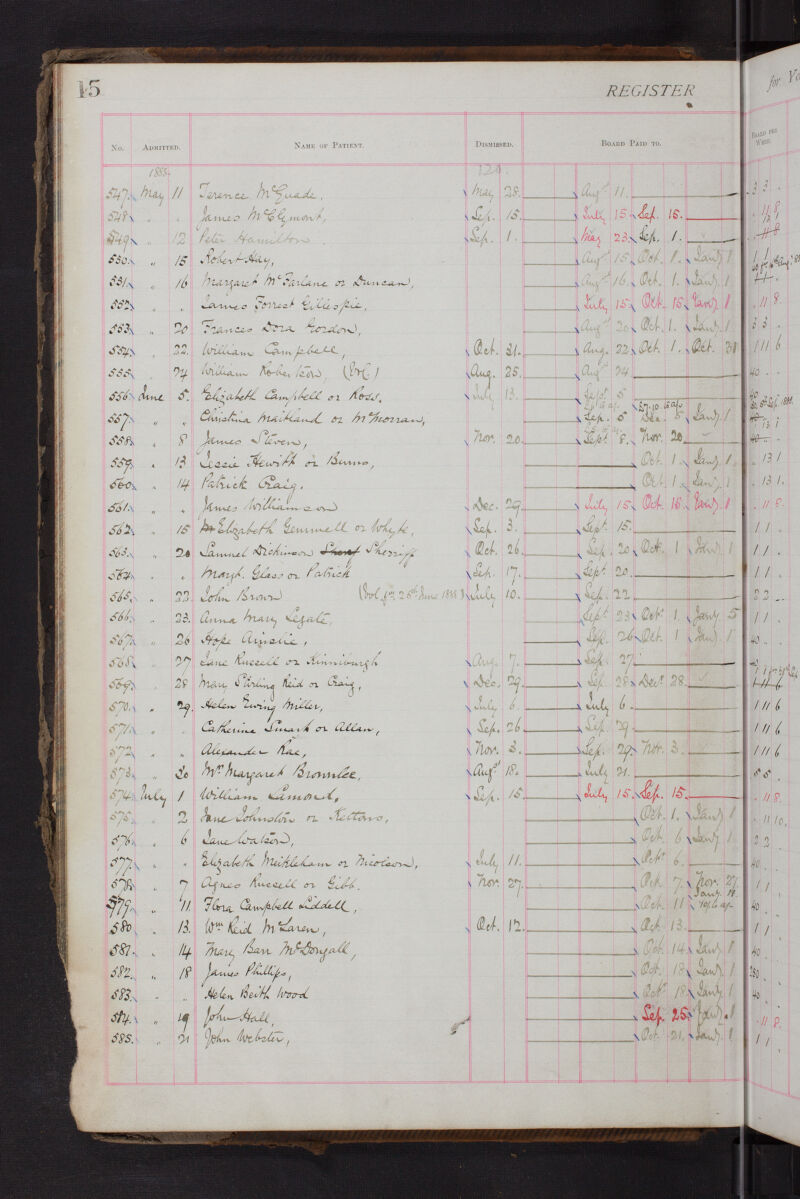 15 REGISTER for
No. Admitted. Name of Patient. Dismissed. Board Paid to. Board per Week.
1888. 120.
547. May 11 Terence McQuade, May 28. Augt 11. 3 3 .
548. " " James McClymont, Sep. 15. July 15 Sep. 15. . 11 8
549. " 12 Peter Hamilton Sep. 1. May 23 Sep. 1. . 11 8
550. " 15 Robert Hay, Augt 15. Oct. 1. Jany 1
551. " 16 Margaret McFarlane or Duncan, Augt 16. Oct. 1. Jany. 1
552. " " James Forrest Gillespie, July 15 Oct. 15 Jany. 1 . 11 8.
553. " 20 Frances Dora Gordon, Augt 20 Oct. 1. Jany. 1 3 3 .
554. " 22. William Campbell, Oct. 31. Aug. 22 Oct. 1. Oct. 31 1 11 6
555. " 24 William Robertson, (Vol.) Aug. 25. Augt 24 40 . .
556. June 5. Elizabeth Campbell or Ross. July 13. Sept. 5 40
557. " " Christina Maitland or McMorran, Sep. 5 Dec. 5 Jany. 1
558. " 8 James Steven, Nov. 20. Sept. 8. Nov. 20 40 . .
559. " 13 Jessie Hewitt or Burns, Oct. 1 Jany. 1 . 13 1
560. " 14 Patrick Craig. Oct. 1 Jany. 1 . 13 1.
561. " " James Williamson Dec. 29. July 15 Oct. 15 Jany. 1 . 11 8.
562. " 15 Elizabeth Gemmell or Whyte, Sep. 3. Sept. 15. 1 1 .
563. " 20 Samuel Dickinson Sherriff Oct. 26. Sep. 20 Oct. 1 Jany 1 1 1 .
564. " " Margt. Glass or Patrick Sep. 17. Sept. 20. 1 1 .
565. " 22. John Brown (Vol. fm. 25th June 1888) July 10. Sep. 22 2 2 .
566. " 23. Anna Mary Legate, Sept. 23 Oct. 1. Jany 5 1 1 .
567. " 26 Hope Ainslie, Sep. 26 Oct. 1 Jany. 1 40 . .
568. " 27 Jane Russell or Kinniburgh Aug. 7. Sep. 27. 40
569. " 28 Mary Stirling Reid or Craig, Dec. 29. Sep. 28 Decr 28. 1 11 6
570. " 29. Helen Ewing Miller, July 6. July 6. 1 11 6
571. " " Catherine Smart or Allan, Sep. 26 Sep. 29. 1 11 6
572. " " Alexander Rae, Nov. 3. Sep. 29. Nov. 3. 1 11 6
573. " 30 Mrs. Margaret Brownlee, Augt 18. July 21. 5 5 .
574. July 1 William Lamond, Sep. 15. July 15. Sep. 15. . 11 8.
575. " 2 Jane Johnston or Kettons, Oct. 1. Jany 1 . 11 10.
576. " 6 Jane Watson, Oct. 6 Jany. 1 2 2 .
577. " " Elizabeth Meikleham or Nicolson, July 11. Octr 6. 40 .
578. " 7 Agnes Russell or Gibb. Nov. 27. Oct. 7. Nov. 27. 1 1
579. " 11 Flora Campbell Liddell, Oct. 11 Jany. 40 .
580 " 13. Wm. Reid McLaren, Oct. 12. Oct. 13. 1 1
581. " 14 Mary Barr McDougall, Oct. 14 Jany 1 40 .
582. " 18 James Phillips, Oct. 18 Jany. 1
583. " " Helen Beith Wood Octr 18 Jany. 1 40 .
584. " 19 John Hall, Sep. 25 Jany. 1 . 11 8.
585. " 21 John Webster, Oct. 21. Jany. 1 1 1